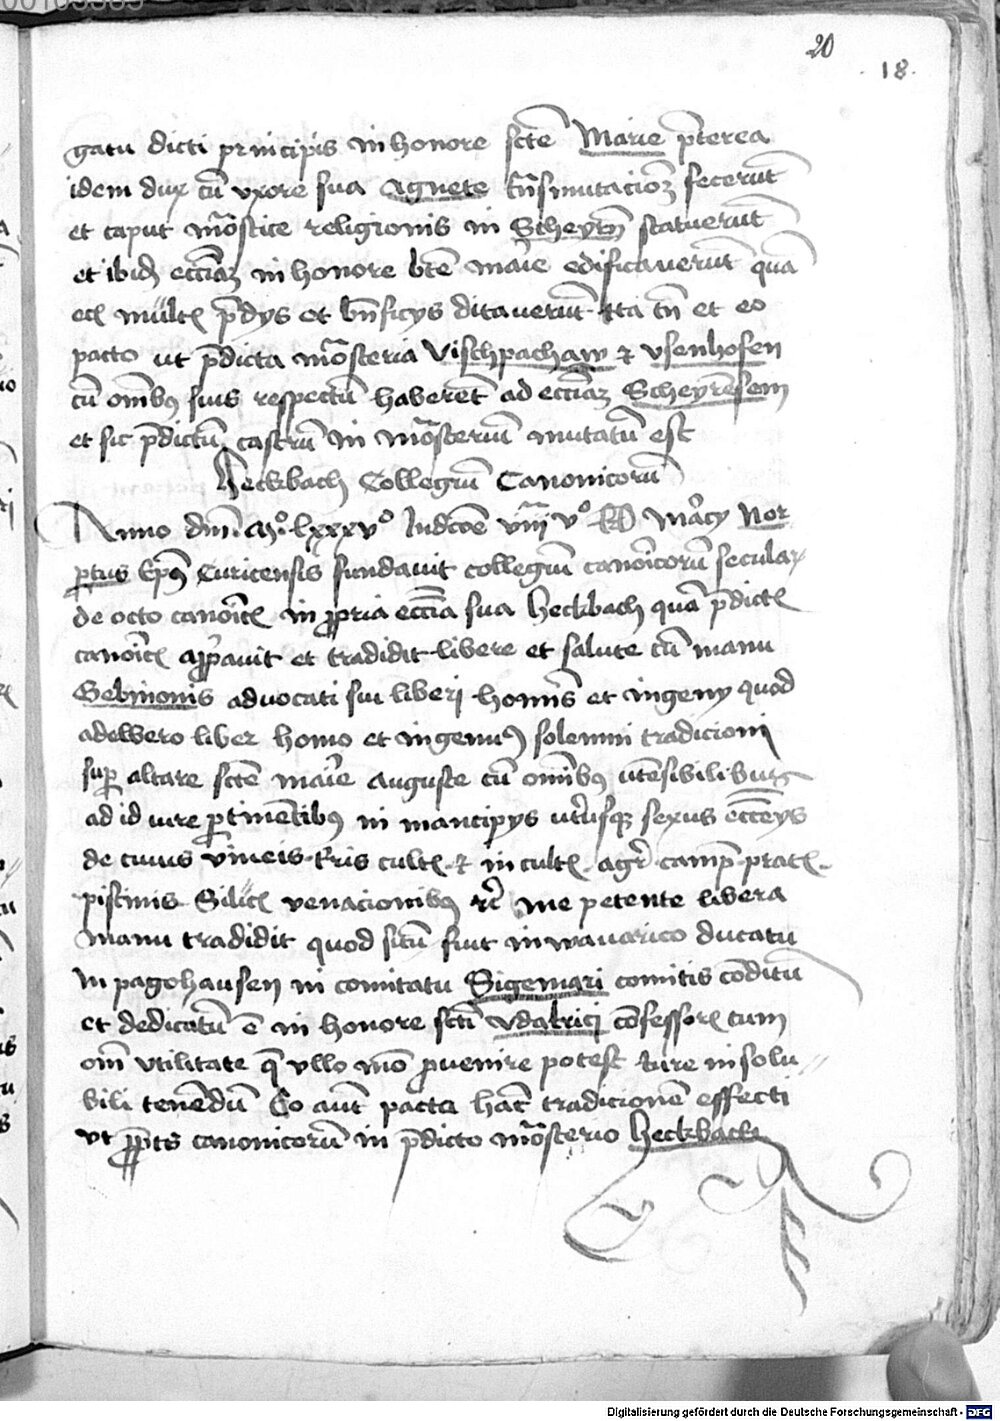 20
18.
gatu dicti principis in honore scte Marie pterea
idem dux cu uxore sua Agnete tnsmutacioez fecerut
et caput mostice religionis in Scheyrn statuerut
et ibid ecciaz in honore bte marie edificaverut qua
eciam multis pdys et bnficys ditaverut ita tn et eo
pacto ut pdicta mosteria Vischpachaw et Usenhofen
cu omibus suis respectu haberet ad ecciaz Scheyresem
et sic pdictu castru in mosteriu mutatu est
Heckbach Collegiu Canonicoru
Anno dni Mo lxxxvo Indcoe viiii vo kl marcy Nor
ptus Epus Curicensis fundavit collegiu canoicoru secular
de octo canoicis in propria eccia sua Heckbach qua pdictis
canoicis appavit et tradidit libere et salute cu manu
Gebinonis advocati sui liberi homis et ingeny quod
adelbero liber homo et ingenuus solemni tradicioni
super altare scte marie auguste cu omibus utesibilibus
ad id iure ptinetibus in mancipys utriusque sexus
de cuius vineis tris cultis et in cultis agris campis pratis
piscinis Silicis venacionibus etc me petente libera
manu tradidit quod situ sint in wavarico ducatu
in pagohausen in comitatu Sigemari comitis coditu
et dedicatu e in honore scti Udalrici cofessoris cum
omi utilitate que ullo mo pvenire potest iure insolu
bili tenedu Eo aut pacto hac tradicione effecti
ut ppts canonicoru in pdicto mosterio Heckbach
Digitalisierung gefördert durch die Deutsche Forschungsgemeinschaft - DFG